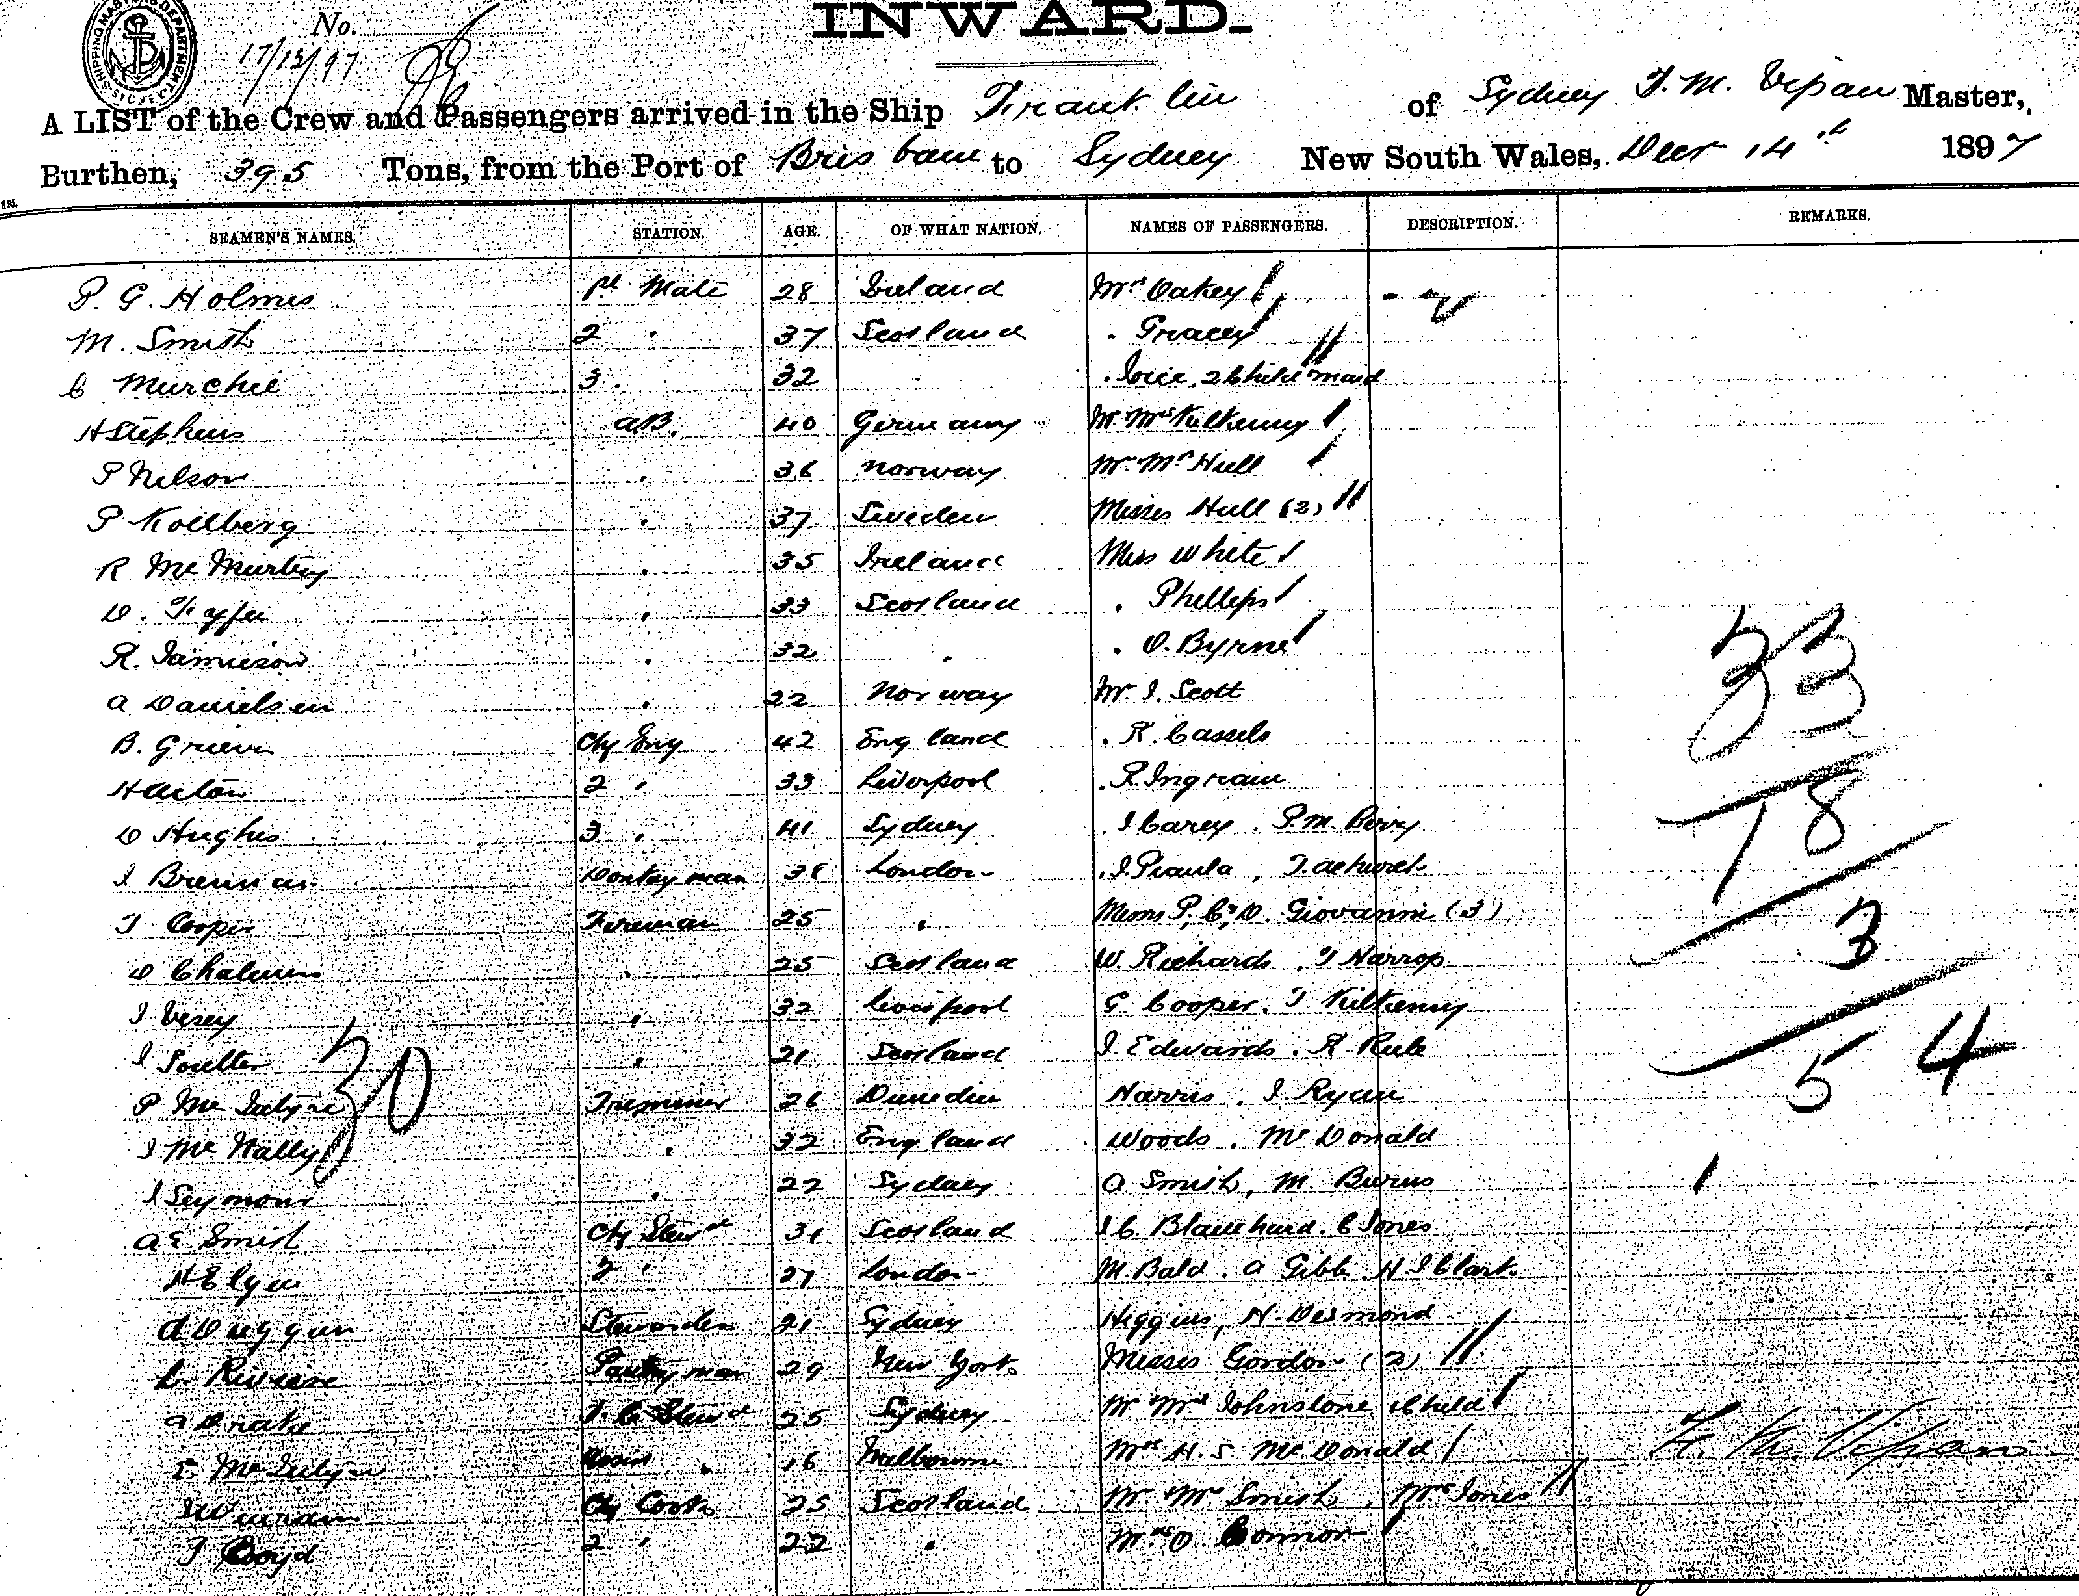 No.
17/12/97
INWARD.
A LIST of the Crew and Passengers arrived in the Ship Franklin of Sydney F. M. Vipan Master,
Burthen, 395 Tons, from the Port of Brisbane to Sydney New South Wales, Decr 14th 1897
SEAMEN'S NAMES. STATION. AGE. OF WHAT NATION. NAMES OF PASSENGERS. DESCRIPTION. REMARKS.
P. G. Holmes 1st Mate 28 Ireland Mrs Oakey
M. Smith 2 " 37 Scotland " Gracey
C Murchie 3 " 32 " " 2 Child maid
H Stephens AB. 40 Germany Mr Mrs Kilkenny
P Nelson " 36 Norway Mr. Mrs Hull
P Kollberg " 37 Sweden Misses Hull (2)
R McMurtry " 35 Ireland Miss White
D. Fyffe " 33 Scotland " Phillips
R. Jamieson " 32 " " O. Byrne
A Danielsen " 22 Norway Mr J. Scott
33
B. Grieve Chf Eng 42 England " R. Cassels
H Acton 2 " 33 Liverpool " R Ingram
D Hughes 3 " 41 Sydney " J Carey . P. M.
18
J Brennan Donkeyman 38 London " J
T Cooper Fireman 25 " Messrs P, C, D. Giovanni (3)
3
D Chalmers " 25 Scotland W Richards . T Harrop
J Vesey " 32 Liverpool G Cooper . T Kilkenny
J Soulter " 21 Scotland J Edwards . R Rule
54
30
P McIntyre Trimmer 26 Dunedin Harris . J Ryan
J McNally " 32 England Woods . McDonald
J Seymour " 22 Sydney A Smith, M Burns
A E Smith Chf Stewd 31 Scotland J C Blanchard . C Jones
H Elgin 2 " 27 London M Bald . A Gibb H J Clark
A Duggan Stewardess 21 Sydney Higgins, H. Desmond
L. Riviere Pantryman 29 New York Misses Gordon (2)
A Drake Stewd 25 Sydney Mr Mrs Johnstone child
E McIntyre " 16 Melbourne Mrs H. S. McDonald
F. M. Vipan
Chf Cook 25 Scotland Mr Mrs Smith . Mrs Jones
T Boyd 2 " 22 " Mrs O Connor